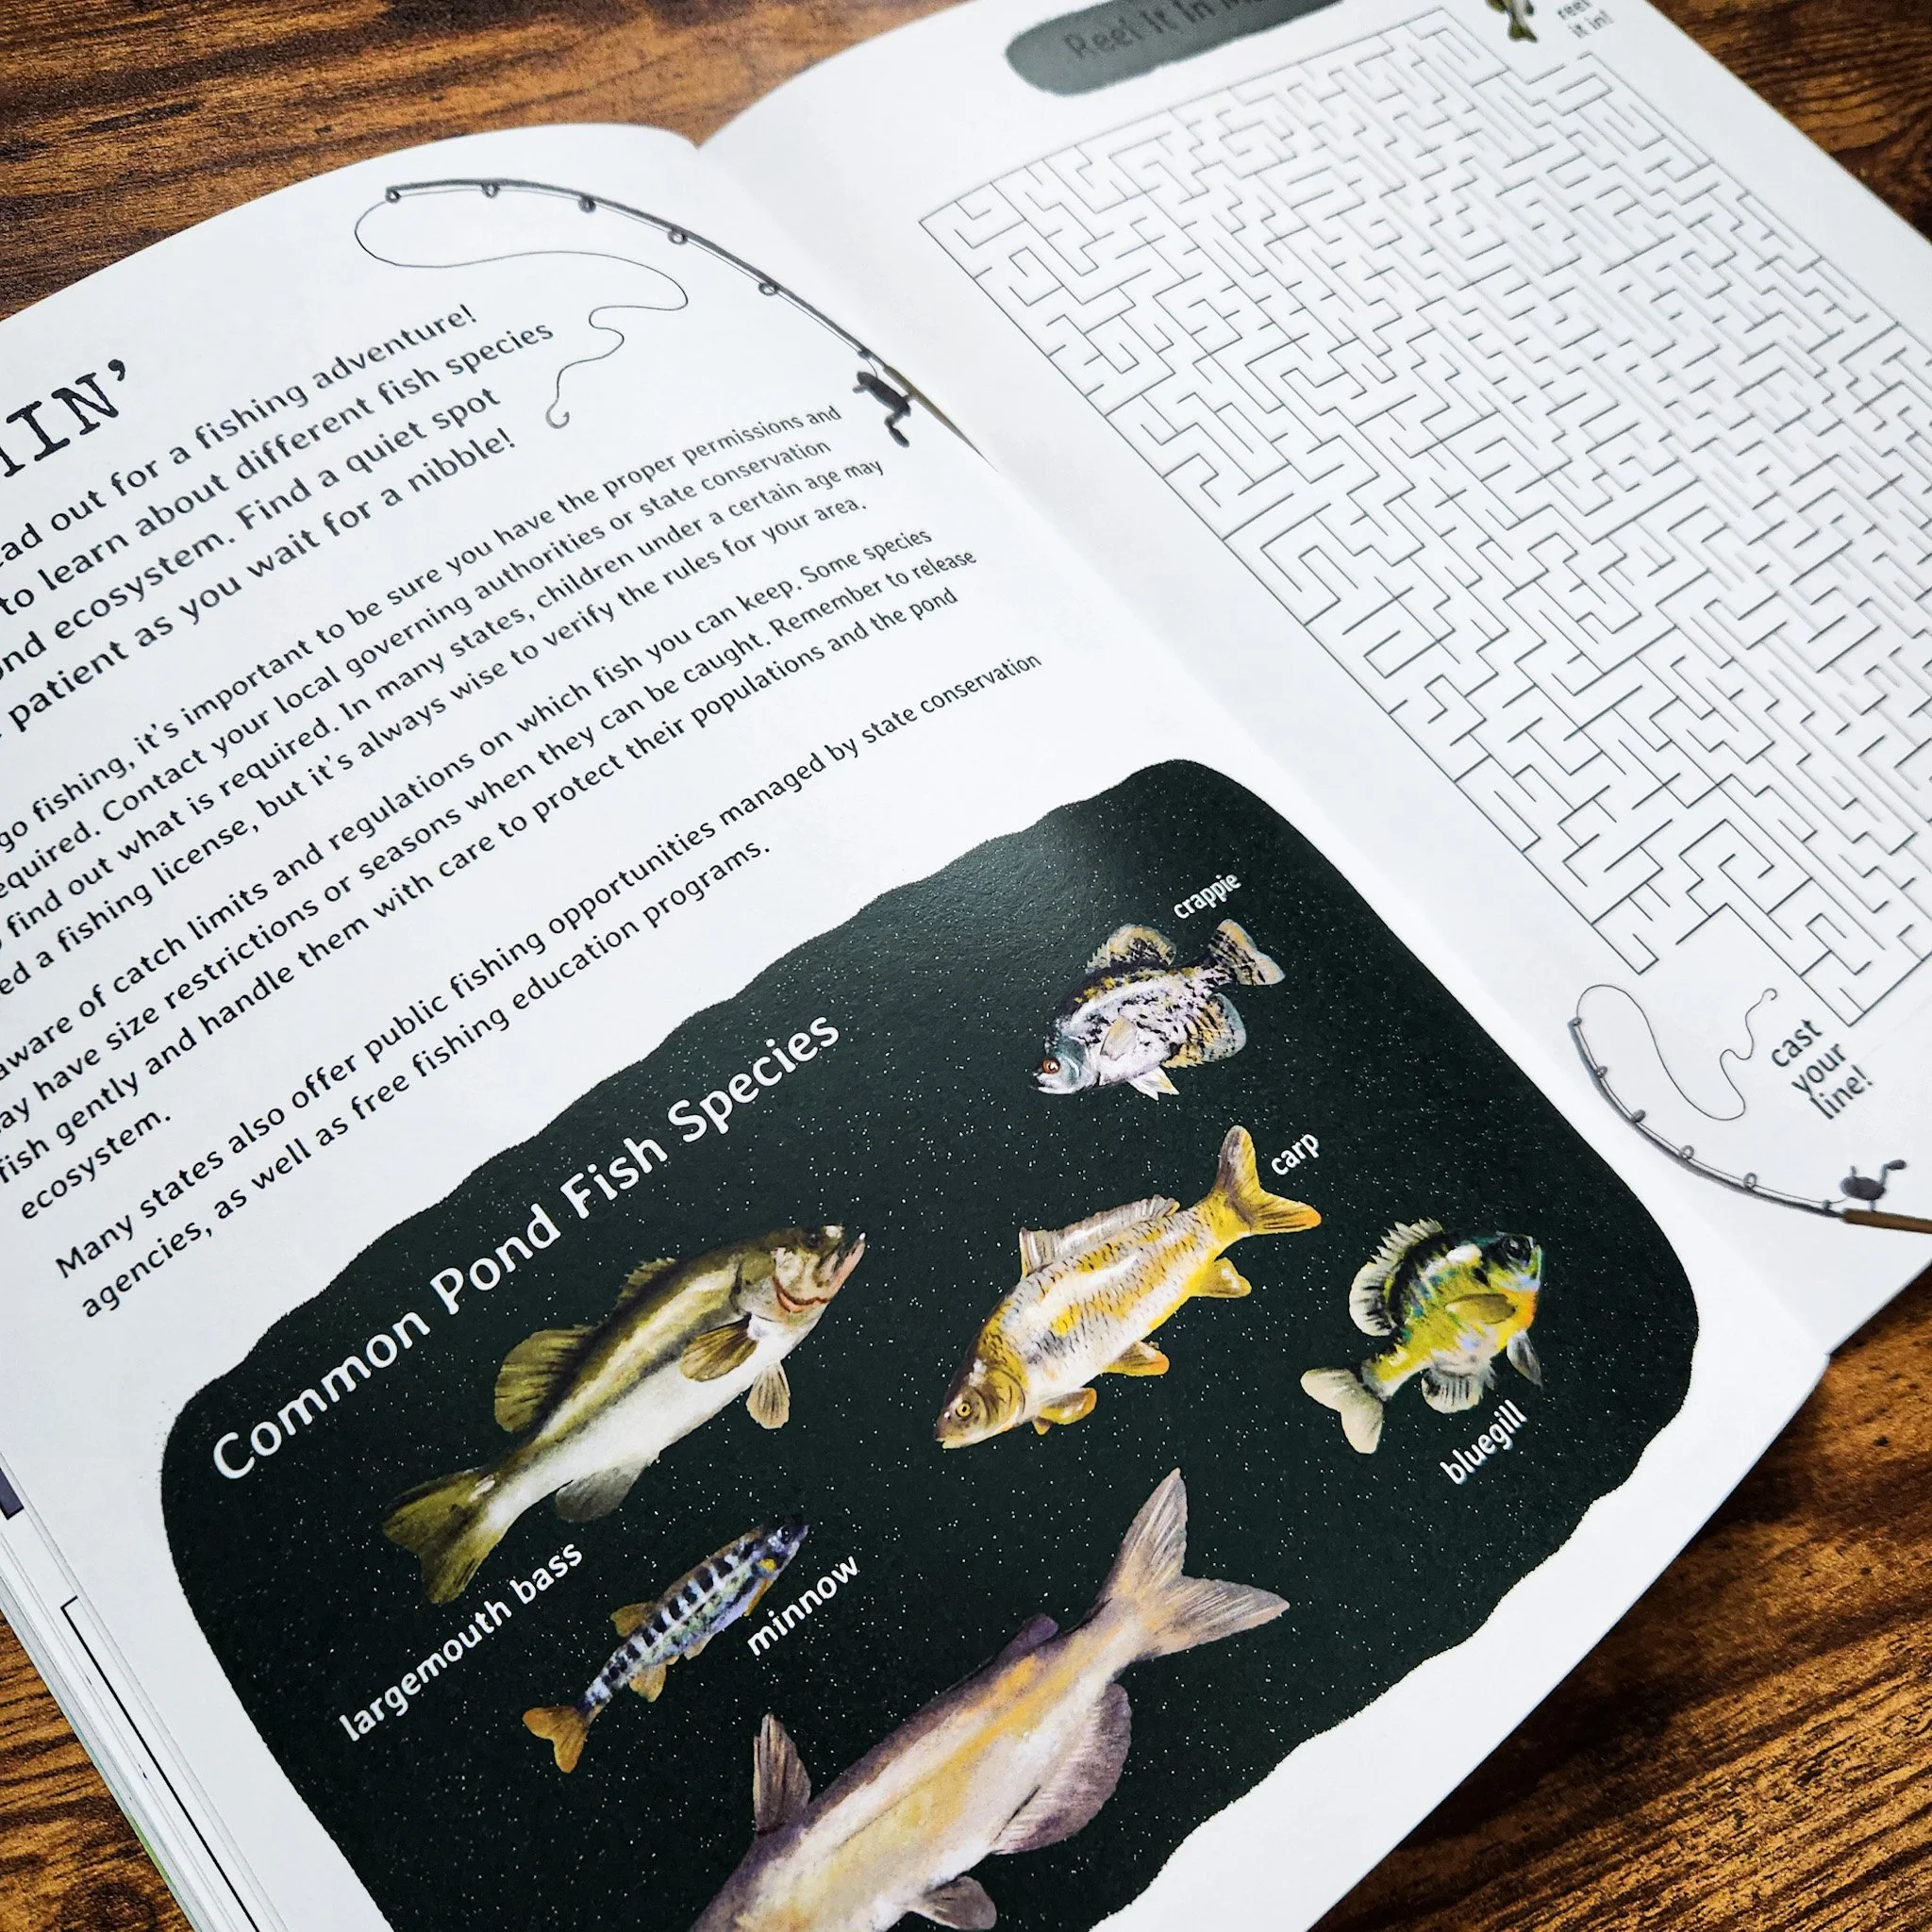 IIN'
ead out for a fishing adventure!
to learn about different fish species
nd ecosystem. Find a quiet spot
patient as you wait for a nibble!
go fishing, it's important to be sure you have the proper permissions and
equired. Contact your local governing authorities or state conservation
find out what is required. In many states, children under a certain age may
ed a fishing license, but it's always wise to verify the rules for your area.
aware of catch limits and regulations on which fish you can keep. Some species
ay have size restrictions or seasons when they can be caught. Remember to release
fish gently and handle them with care to protect their populations and the pond
ecosystem.
Many states also offer public fishing opportunities managed by state conservation
agencies, as well as free fishing education programs.
Common Pond Fish Species
crappie
carp
bluegill
largemouth bass
minnow
Reel it in
reel
it in!
cast
your
line!